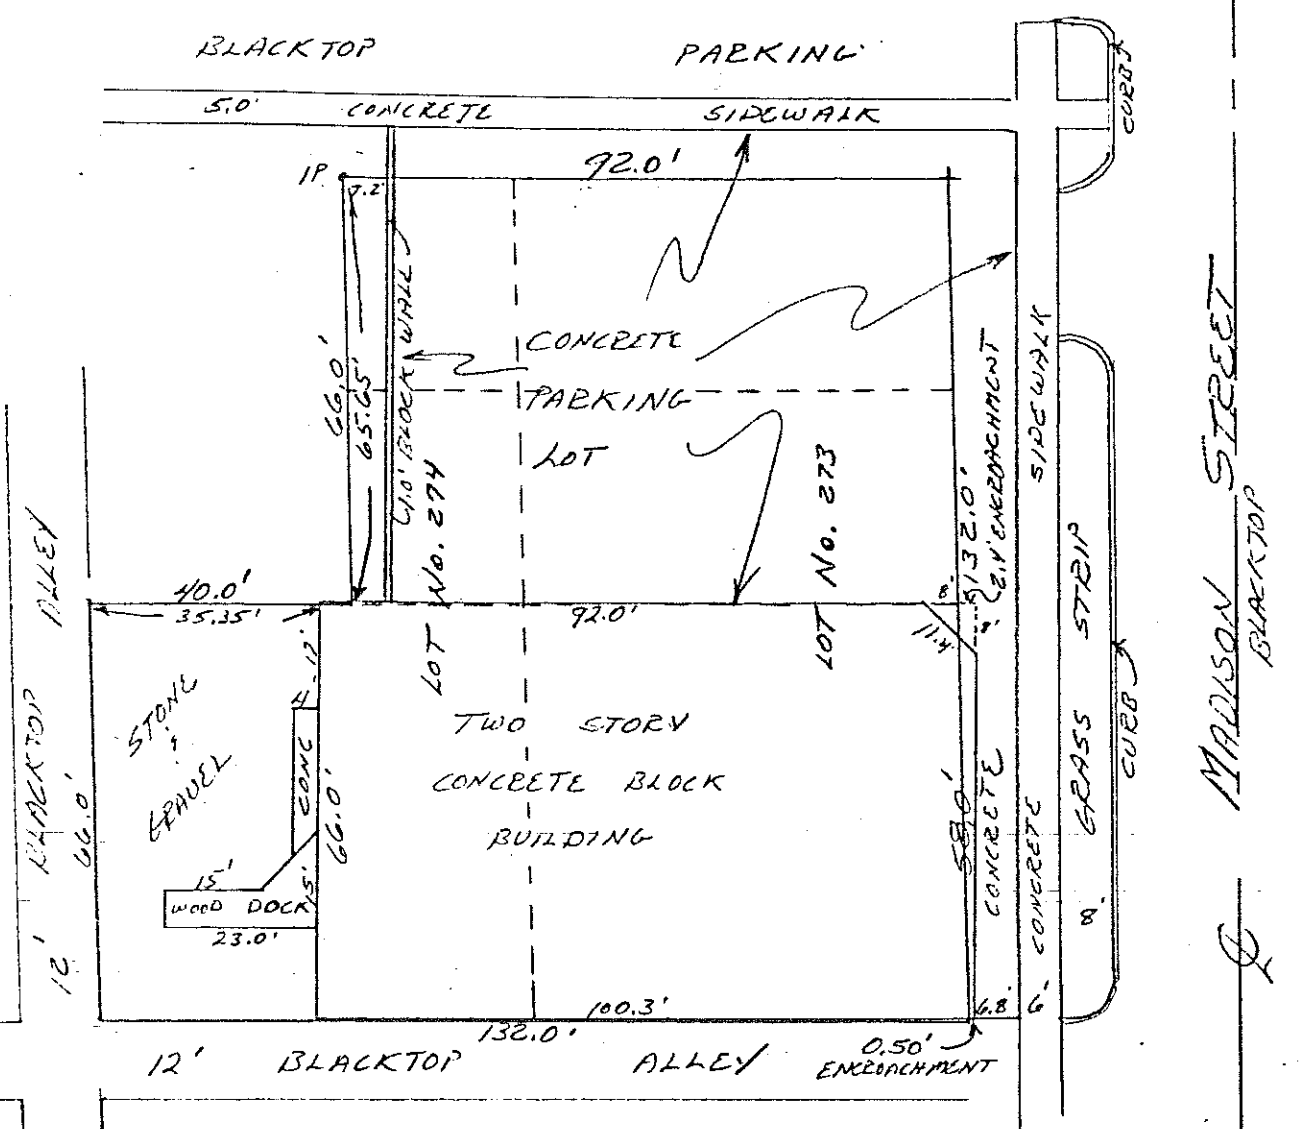 BLACKTOP PARKING
5.0' CONCRETE SIDEWALK
CURB
IP
7.2'
92.0'
66.0'
65.65'
1.0' BLOCK WALL
CONCRETE
PARKING
LOT
LOT No. 274
LOT No. 273
132.0'
2.4' ENCROACHMENT
SIDEWALK
MADISON STREET
BLACKTOP
40.0'
35.35'
92.0'
8'
8'
11.4'
12' BLACKTOP ALLEY
66.0'
STONE
&
GRAVEL
4'
17'
CONC
66.0'
15'
15'
WOOD DOCK
23.0'
TWO STORY
CONCRETE BLOCK
BUILDING
58.0'
CONCRETE
6' CONCRETE
8' GRASS STRIP
CURB
100.3'
132.0'
6.8'
0.50'
ENCROACHMENT
12' BLACKTOP ALLEY